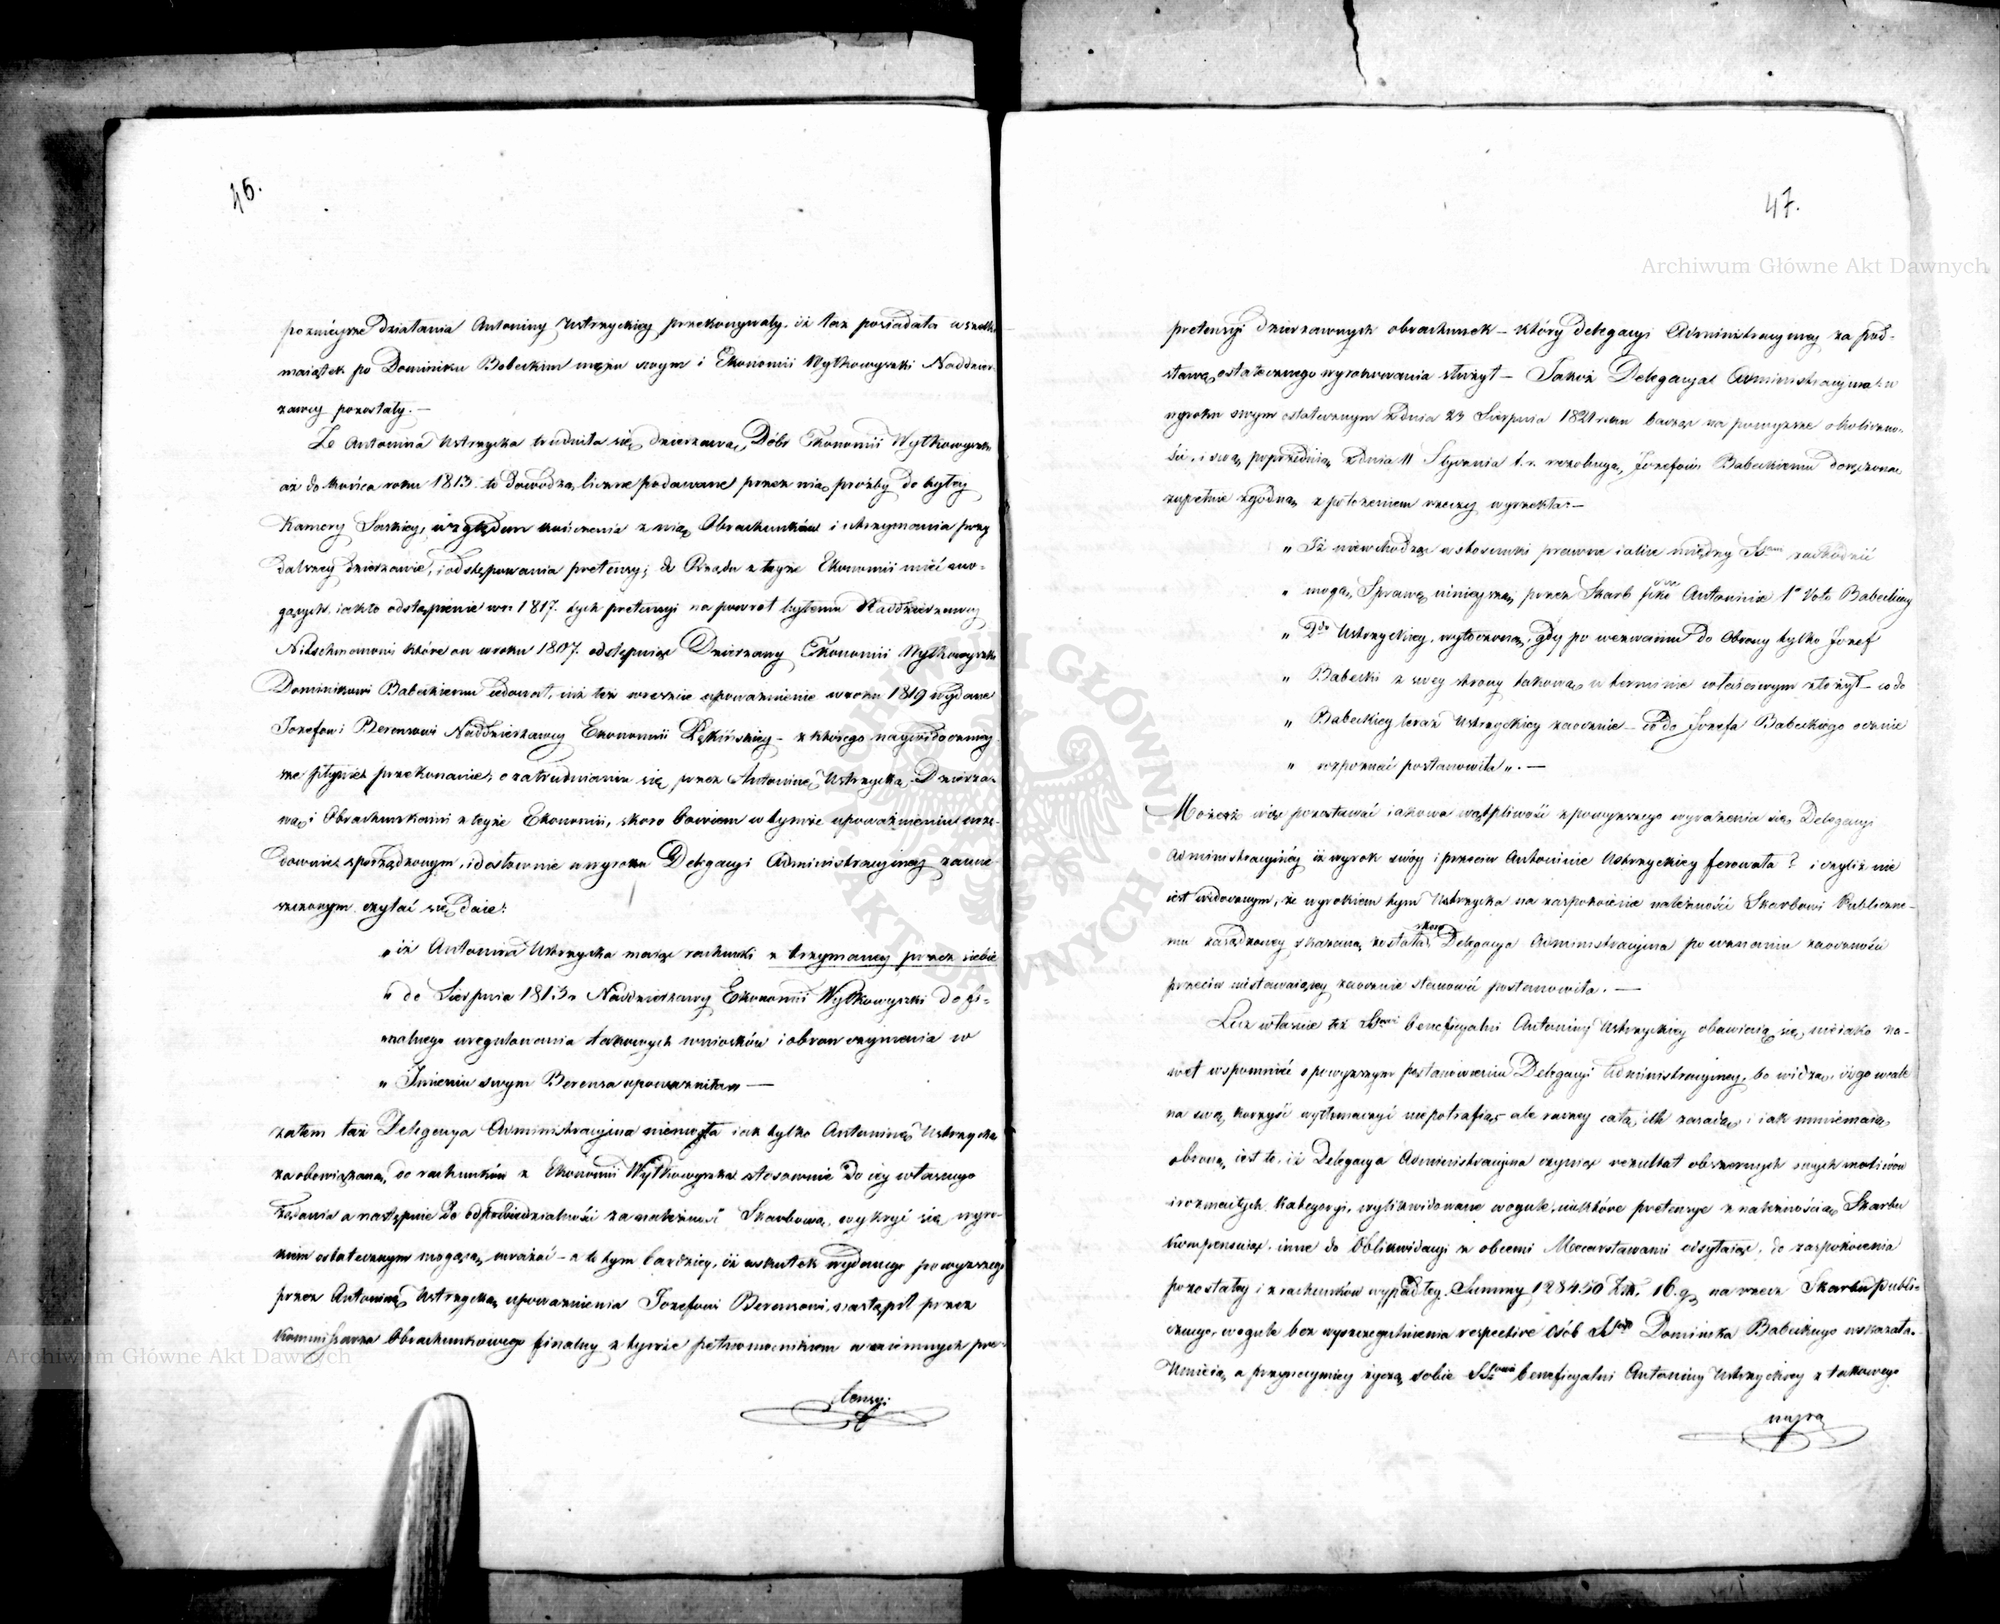 46.
poznieysze działania Antoniny Ustrzyckiey przekonywały, iż taż posiadała wszelki
maiątek po Dominiku Babeckim mężu swym i Ekonomii Wytkowyszki Naddzier-
zawcy pozostały. —
Że Antonina Ustrzycka trudniła się dzierzawą Dóbr Ekonomii Wytkowyszki
aż do końca roku 1813 to dowodzą liczne podawane przez nią prozby do byłey
Kamery Saskiey, względem kończenia z nią Obrachunków i utrzymania przy
dalszey dzierzawie, i odstępowania pretensyi do Rządu z teyże Ekonomii mieć mo-
gących iakto odstąpienie w r. 1817. tych pretensyi na powrót byłemu Naddzierzawcy
Nitschmanowi które on w roku 1807. odstępuiąc Dzierzawy Ekonomii Wytkowyszki
Dominikowi Babeckiemu cedował, iuż też wreszcie upoważnienie w roku 1819 wydane
Jozefowi Berensowi Naddzierzawcy Ekonomii — z którego naywidoczniey-
sze płynie przekonanie, o zatrudnianiu się przez Antoninę Ustrzycką Dzierza-
wą i Obrachunkami z teyże Ekonomii, skoro bowiem w tymże upoważnieniu urzę-
downie sporządzonym, i dosłownie w wyroku Delegacyi Administracyiney zamie-
szczonym czytać się daie:
„ iż Antonina Ustrzycka maiąc rachunki z trzymaney przez siebie
„ do Sierpnia 1813 r. Naddzierzawy Ekonomii Wytkowyszki do fi-
nalnego uregulowania takowych wniosków i obron czynienia w
„ Imieniu swym Berensa upoważniła „ —
zatem taż Delegacya Administracyina niemogła iak tylko Antoninę Ustrzycką
za obowiązaną do rachunków z Ekonomii Wytkowyszki stosownie do iey własnego
Żądania a następnie do odpowiedzialności za należność Skarbową, wykryć się wyro-
kiem ostatecznym mogącą, uważać — a to tym bardziey, iż w skutek wydanego powyższego
przez Antoninę Ustrzycką upoważnienia Jozefowi Berensowi, nastąpił przez
Kommissarza Obrachunkowego finalny z tymże pełnomocnikiem wzaiemnych pre-
tensyi
47.
Archiwum Główne Akt Dawnych
pretensyi dzierzawnych obrachunek — który delegacyi Administracyiney za pod-
stawę ostatecznego wyrokowania służył — Jakoż Delegacya Administracyina w
wyroku swym ostatecznym z dnia 23 Sierpnia 1821 roku bacząc na powyższe okoliczno-
ści, i swą poprzednią z dnia 11 Stycznia t. r. rezolucyą, Jozefowi Babeckiemu doręczoną
zupełnie zgodną z położeniem rzeczy wyrzekła: —
„ Iż niewchodząc w stosunki prawne iakie między SSrami zachodzić
„ mogą, Sprawę ninieyszą przez Skarb Antoninie 1o Voto Babeckiey
„ 2do Ustrzyckiey, wytoczoną, gdy po wezwaniu do Obrony tylko Jozef
„ Babecki z swey strony takową w terminie właściwym złożył — co do
„ Babeckiey teraz Ustrzyckiey zaocznie — co do Jozefa Babeckiego ocznie
„ rozpoznać postanowiła „. —
Możesz więc pozostawać iakowa wątpliwość z powyższego wyrażenia się Delegacyi
Administracyiney iż wyrok swóy i przeciw Antoninie Ustrzyckiey ferowała? i czyliż nie
iest widocznym, że wyrokiem tym Ustrzycka na zaspokoienie należności Skarbowi Publiczne-
mu zasądzoney skazaną została, skoro Delegacya Administracyina po uznaniu zaoczności
przeciw niestawaiącey zaocznie stanowić postanowiła. —
Lecz właśnie też SSrowie beneficyalni Antoniny Ustrzyckiey obawiaią się, nieiako na-
wet wspomnieć o powyższym postanowieniu Delegacyi Administracyiney, bo widzą, iż go wcale
na swą korzyść wytłumaczyć niepotrafią — ale raczey całą ich zasadą, i iak mniemaią,
obroną iest to, iż Delegacya Administracyina czyniąc rezultat obszernych swych motivów
i rozmaitych kategoryi, wylikwidowane wogule, niektóre pretensye z należnością Skarbu
kompensuiąc, inne do Oblikwidacyi z obcemi Mocarstwami odsyłaiąc, do zaspokoienia
pozostałey i z rachunków wypadłey Summy 128450 Złt. 16. g. na rzecz Skarbu publi-
cznego, wogule bez wyszczegulnienia respective Osób SSrów Dominika Babeckiego wskazała.
Umieią, a przynaymniey życzą sobie SSrowie beneficyalni Antoniny Ustrzyckiey z takowego
Archiwum Główne Akt Dawnych